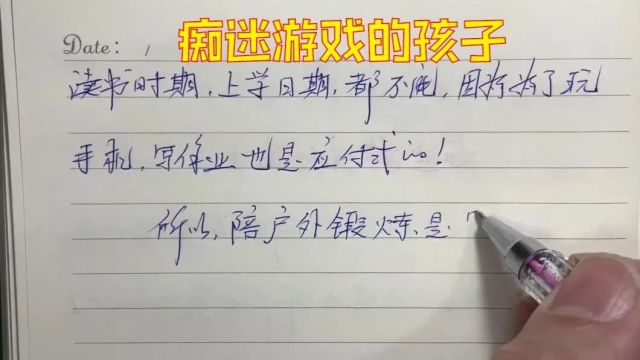 痴迷游戏的孩子
Date: /
读书时期,上学日期,都不 为了玩
手机,写作业也是应付式的!
所以,陪户外锻炼是